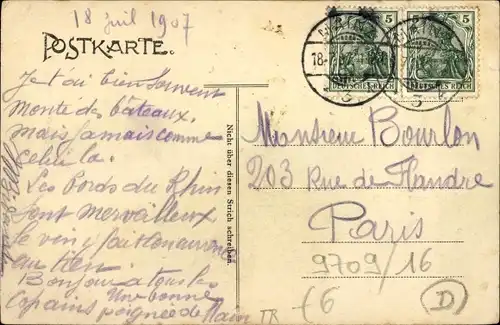 18 Juil 1907
POSTKARTE.
5 5
MAINZ MAINZ
18.7.07
DEUTSCHES REICH DEUTSCHES REICH
Je t'ai bien souvent
monté des bateaux,
mais jamais comme
celui là.
Les Bords du Rhin
sont merveilleux
le vin y fait
au tien
Bonjour a tous les
Copains Une bonne
poignée de Main
Nicht über diesen Strich schreiben.
Monsieur Bourlon
203 Rue de Flandre
Paris
9709/16
€6
D
TR